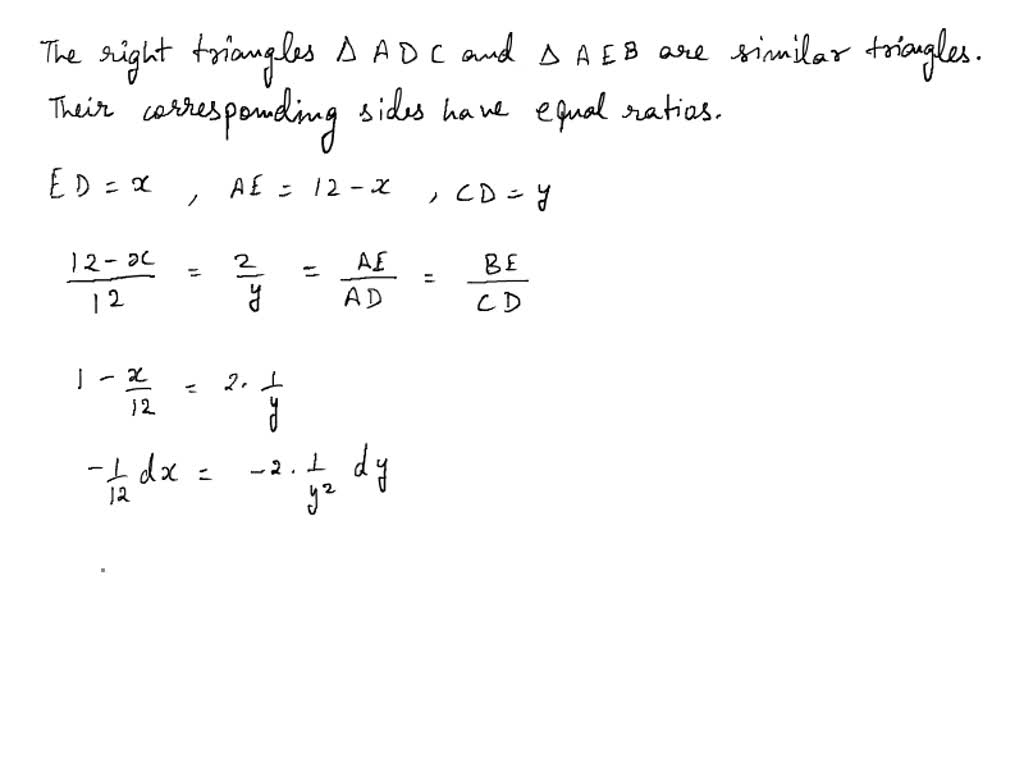 The right triangles Δ ADC and Δ AEB are similar triangles.
Their corresponding sides have equal ratios.
ED = x , AE = 12 - x , CD = y
12 - x / 12 = 2 / y = AE / AD = BE / CD
1 - x / 12 = 2 . 1 / y
- 1 / 12 dx = - 2 . 1 / y² dy